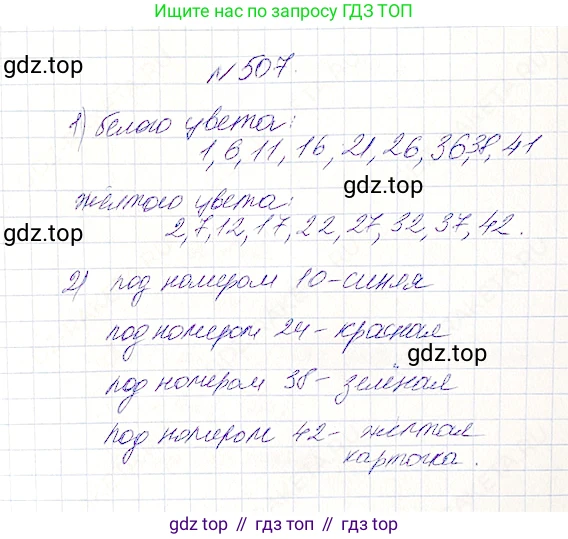 больше по запросу ГДЗ ТОП
gdz.top
№ 507.
1) белого цвета:
1, 6, 11, 16, 21, 26, 36, 38, 41
gdz.top
жёлтого цвета:
gdz.top
2, 7, 12, 17, 22, 27, 32, 37, 42.
2) под номером 10 - синяя
под номером 24 - красная
gdz.top
под номером 38 - зелёная
под номером 42 - жёлтая
карточка.
gdz top // гдз топ // gdz.top